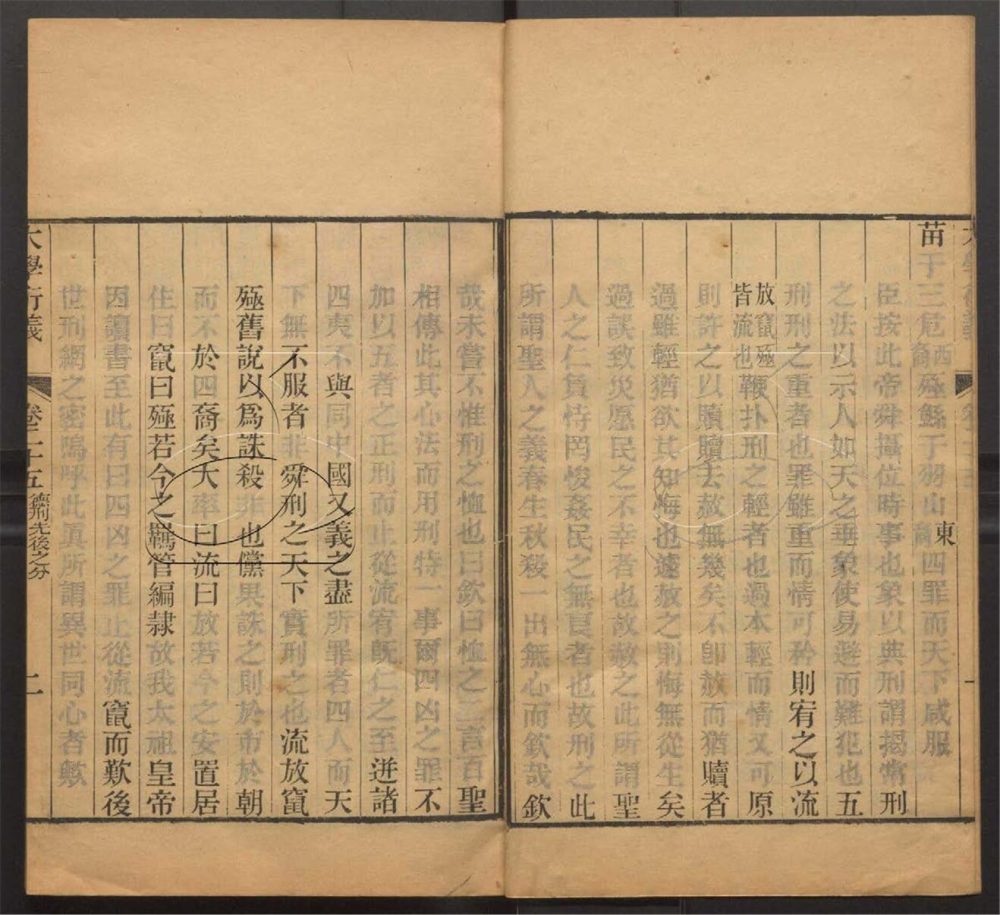 苗于三危西裔殛鯀于羽山東裔四罪而天下咸服
臣按此帝舜攝位時事也象以典刑謂揭常刑
之法以示人如天之垂象使易避而難犯也五
刑刑之重者也罪雖重而情可矜則宥之以流
放竄殛皆流也鞭扑刑之輕者也過本輕而情又可原
則許之以贖贖去赦無幾矣不即赦而猶贖者
過雖輕猶欲其知悔也遽赦之則悔無從生矣
過誤致災愿民之不幸者也故赦之此所謂聖
人之仁負恃罔悛姦民之無良者也故刑之此
所謂聖人之義春生秋殺一出無心而欽哉欽
哉未嘗不惟刑之恤也曰欽曰恤之言百聖
相傳此其心法而用刑特一事爾四凶之罪不
加以五者之正刑而止從流宥旣仁之至迸諸
四夷不與同中國又義之盡所罪者四人而天
下無不服者非舜刑之天下實刑之也流放竄
殛舊說以爲誅殺非也儻果誅之則於市於朝
而不於四裔矣大率曰流曰放若今之安置居
住曰竄曰殛若今之羈管編隸故我太祖皇帝
因讀書至此有曰四凶之罪止從流竄而歎後
世刑網之密嗚呼此眞所謂異世同心者歟
大學衍義
卷二十五
德刑先後之分
二